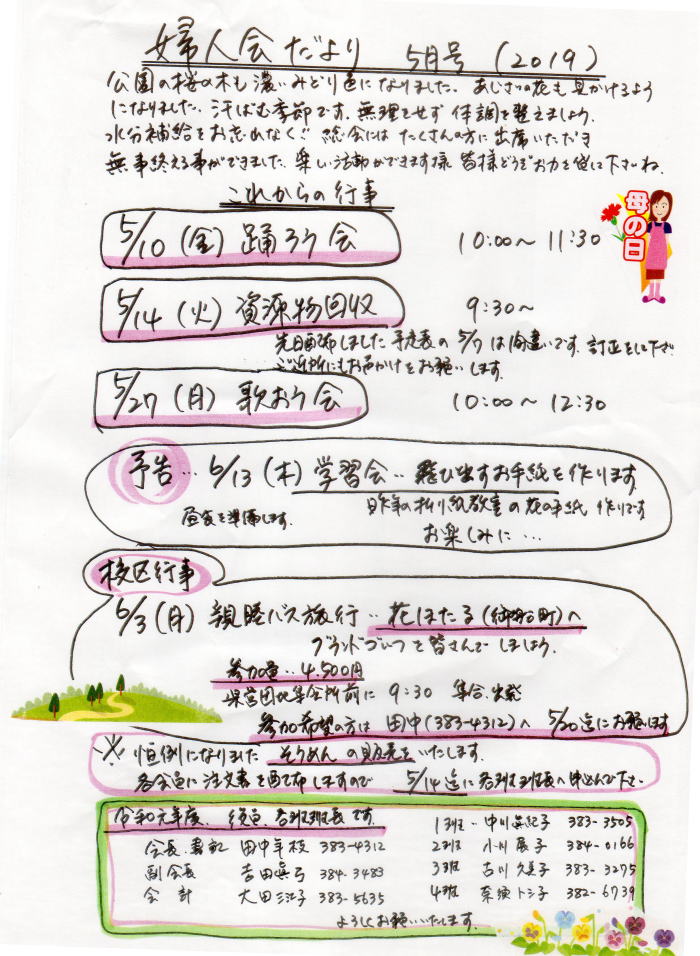 婦人会だより 5月号 (2019)
公園の桜の木も濃いみどり色になりました。あじさいの花も見かけるよう
になりました。汗ばむ季節です。無理をせず 体調を整えましょう。
水分補給をお忘れなく!! 総会には たくさんの方に出席いただき
無事終える事ができました。楽しい活動ができます様 皆様どうぞお力を貸して下さいね。
これからの行事
母の日
5/10 (金) 踊ろう会 10:00〜11:30
5/14 (火) 資源物回収 9:30〜
先日配布しました予定表の 5/7 は間違いです。訂正をして下さい
ご近所にもお声かけをお願いします。
5/27 (月) 歌おう会 10:00〜12:30
予告… 6/13 (木) 学習会‥飛び出すお手紙を作ります
昼食を準備します。 昨年の折り紙教室の花の手紙作りです
お楽しみに…
校区行事
6/3(月) 親睦バス旅行‥花ほたる(御船町)へ
グランドゴルフを皆さんでしましょう。
参加費‥4.500円
県営団地集会所前に 9:30 集合、出発
参加希望の方は 田中(383-4312)へ 5/20迄にお願います
※ 恒例になりました そうめんの販売をいたします。
各会員に注文書を配布しますので 5/14迄に各班班長へ申込んで下さい
令和元年度、役員、各班班長です。
会長・書記 田中年枝 383-4312
副会長 吉田眞弓 384-3483
会計 大田三江子 383-5635
1班‥中川真紀子 383-3505
2班 小川展子 384-0166
3班 古川久美子 383-3275
4班 奈須トシ子 382-6739
よろしくお願いいたします。